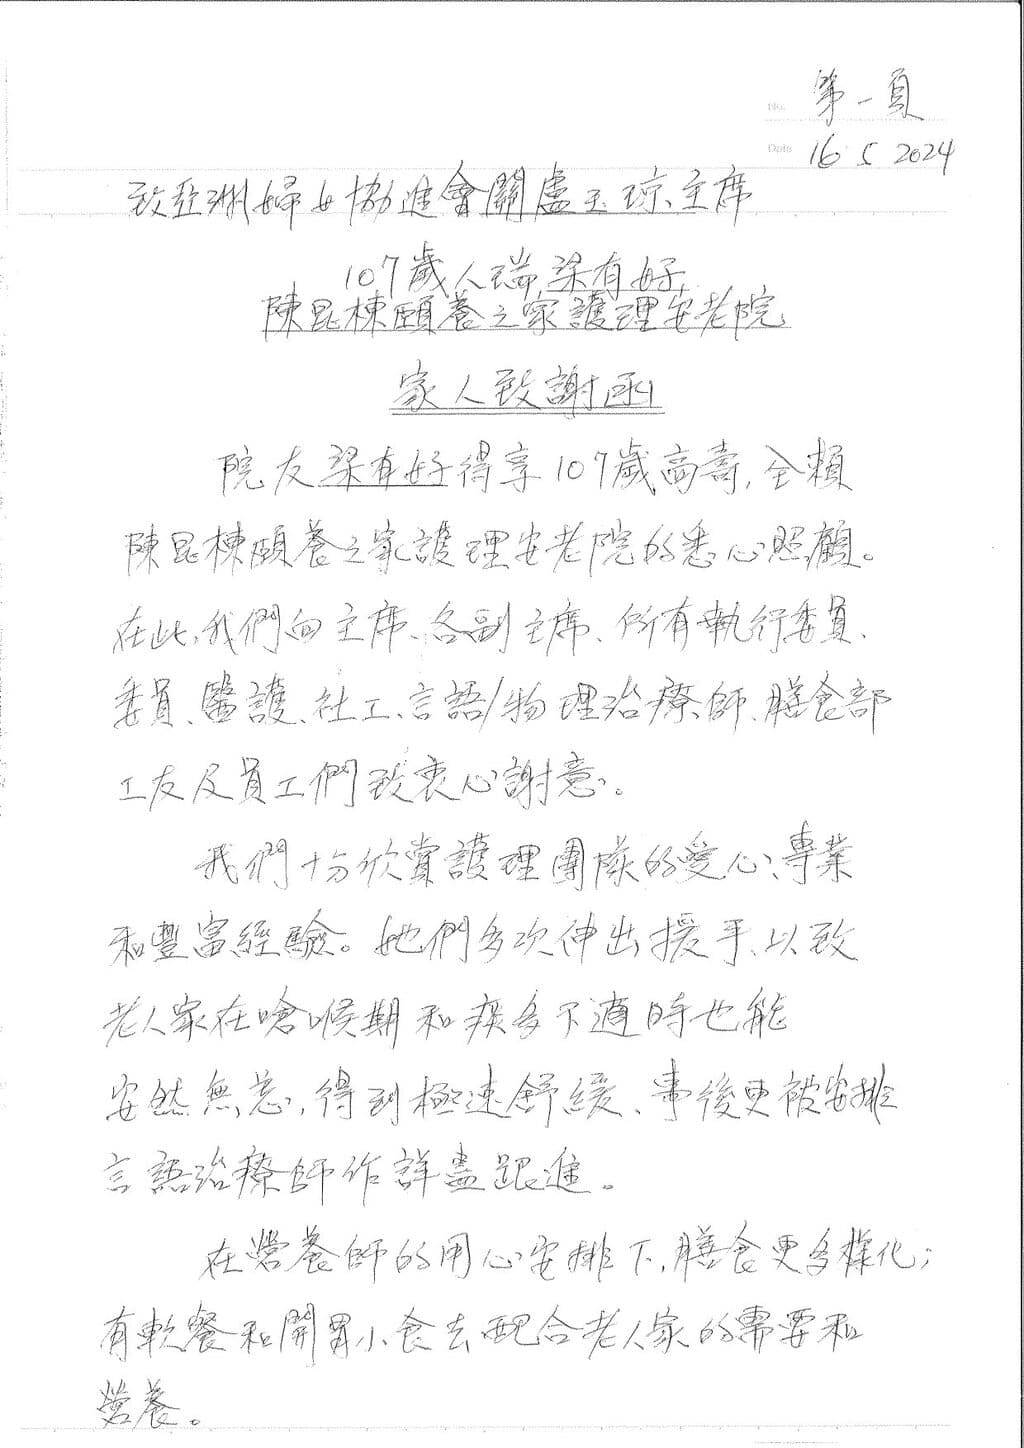 No. 第一頁
Date 16 5 2024
致亞洲婦女協進會關盧玉琼主席
107歲人瑞,梁有好,
陳昆棟頤養之家護理安老院
家人致謝函
院友梁有好得享107歲高壽,全賴
陳昆棟頤養之家護理安老院的悉心照顧。
在此,我們向主席、各副主席、所有執行委員、
委員、醫護、社工、言語/物理治療師、膳食部
工友及員工們致衷心謝意。
我們十分欣賞護理團隊的愛心、專業
和豐富經驗。她們多次伸出援手、以致
老人家在嗆喉期和痰多不適時也能
安然無恙,得到極速舒緩、事後更被安排
言語治療師作詳盡跟進。
在營養師的用心安排下,膳食更多樣化;
有軟餐和開胃小食去配合老人家的需要和
營養。